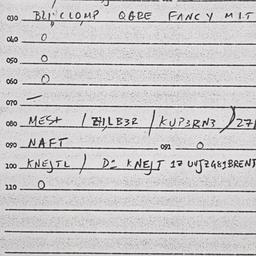 030 CLOMP QBRE FANCY MIT
040 0
050 0
060 0
070 —
080 MEST / ZHLB32 / KUP3RN3 ) 27
090 NAFT 091 0
100 KNEJTL / DE KNEJT 17
110 0